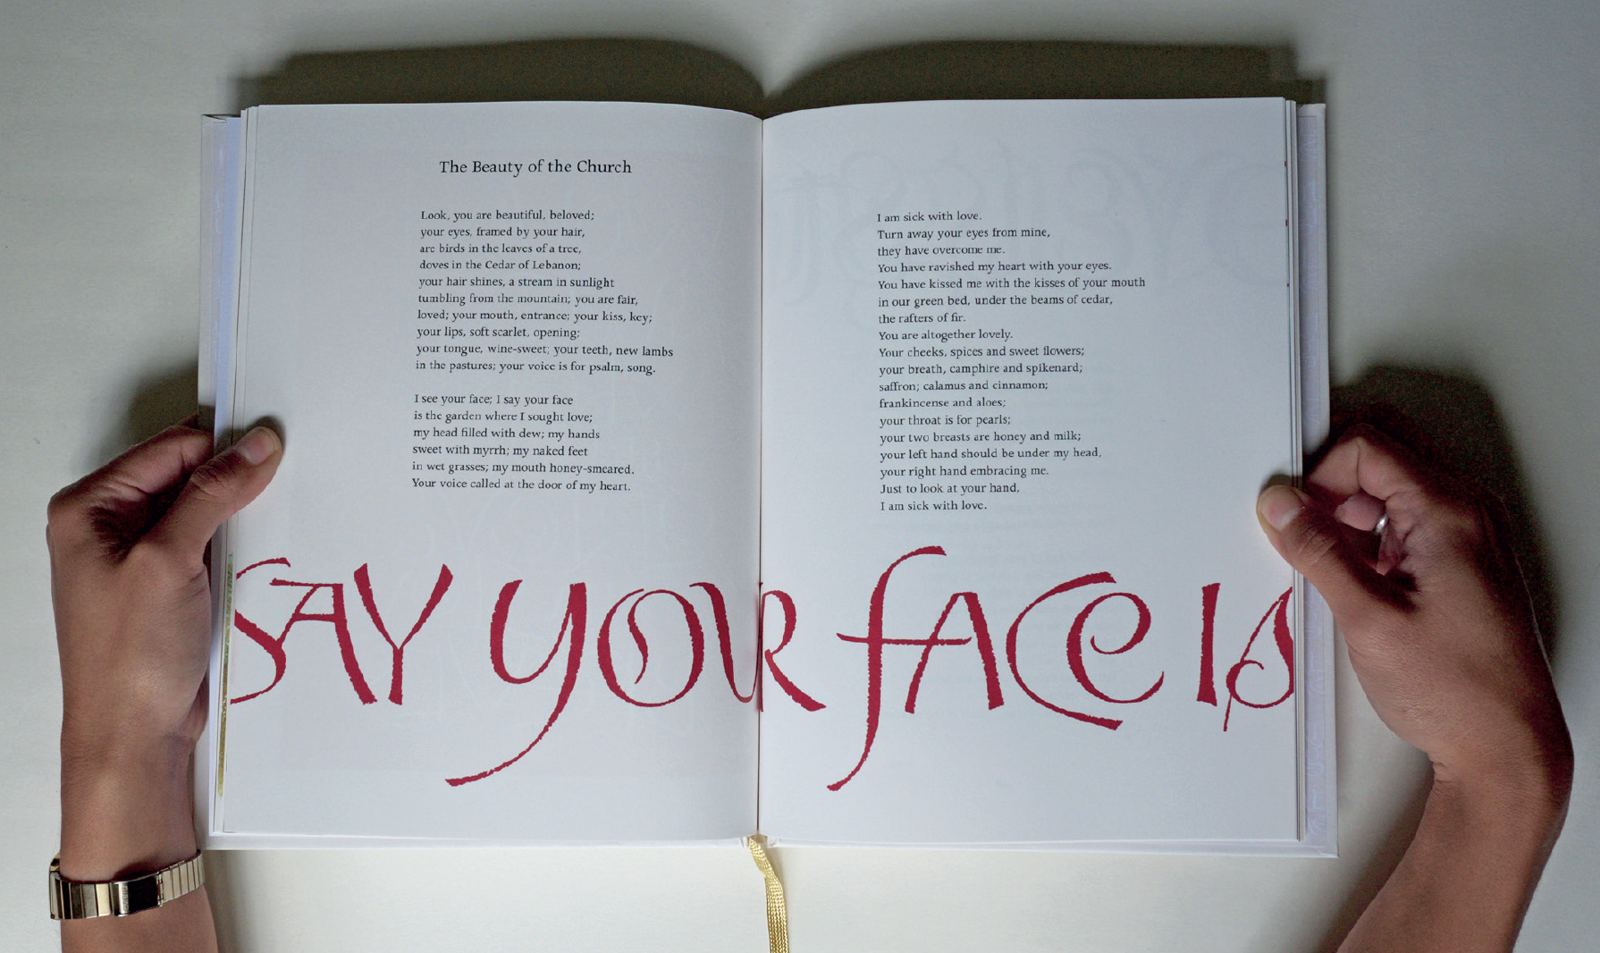 The Beauty of the Church
Look, you are beautiful, beloved;
your eyes, framed by your hair,
are birds in the leaves of a tree,
doves in the Cedar of Lebanon;
your hair shines, a stream in sunlight
tumbling from the mountain; you are fair,
loved; your mouth, entrance; your kiss, key;
your lips, soft scarlet, opening;
your tongue, wine-sweet; your teeth, new lambs
in the pastures; your voice is for psalm, song.
I see your face; I say your face
is the garden where I sought love;
my head filled with dew; my hands
sweet with myrrh; my naked feet
in wet grasses; my mouth honey-smeared.
Your voice called at the door of my heart.
I am sick with love.
Turn away your eyes from mine,
they have overcome me.
You have ravished my heart with your eyes.
You have kissed me with the kisses of your mouth
in our green bed, under the beams of cedar,
the rafters of fir.
You are altogether lovely.
Your cheeks, spices and sweet flowers;
your breath, camphire and spikenard;
saffron; calamus and cinnamon;
frankincense and aloes;
your throat is for pearls;
your two breasts are honey and milk;
your left hand should be under my head,
your right hand embracing me.
Just to look at your hand,
I am sick with love.
SAY YOUR FACE IS